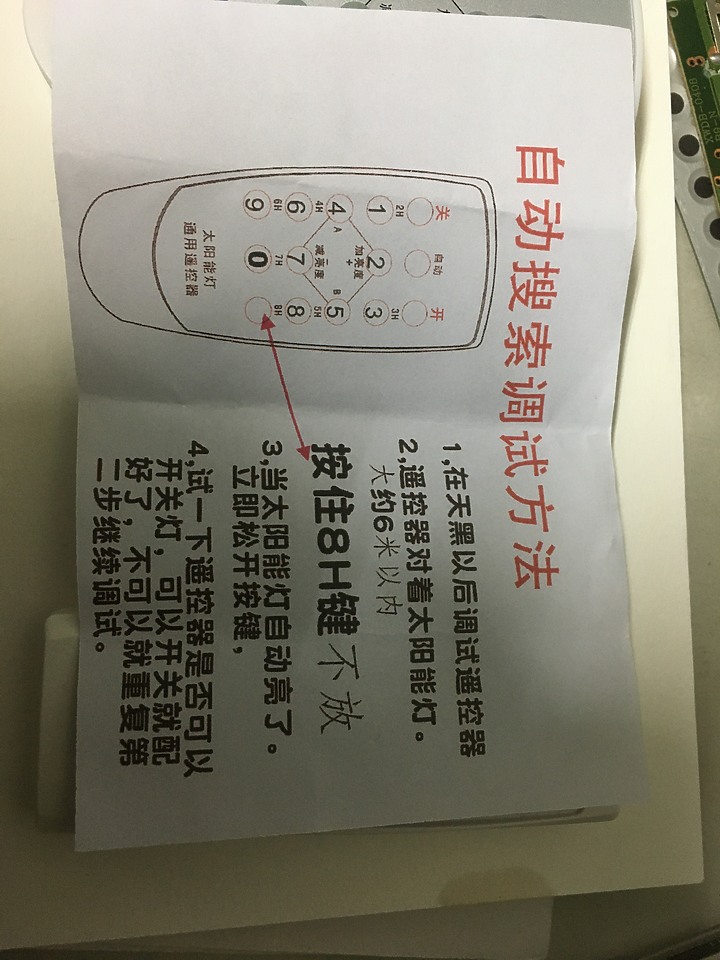 自动搜索调试方法
关 自动 开
2H 3H
1 2 3
加亮度
+
A B
4 5
4H 减亮度 5H
6 7 8
6H 7H 8H
9 0
太阳能灯
通用遥控器
1,在天黑以后调试遥控器
2,遥控器对着太阳能灯。
大约6米以内
按住8H键 不放
3,当太阳能灯自动亮了。
立即松开按键，
4,试一下遥控器是否可以
开关灯，可以开关就配
好了，不可以就重复第
二步继续调试。
XWDB-040B